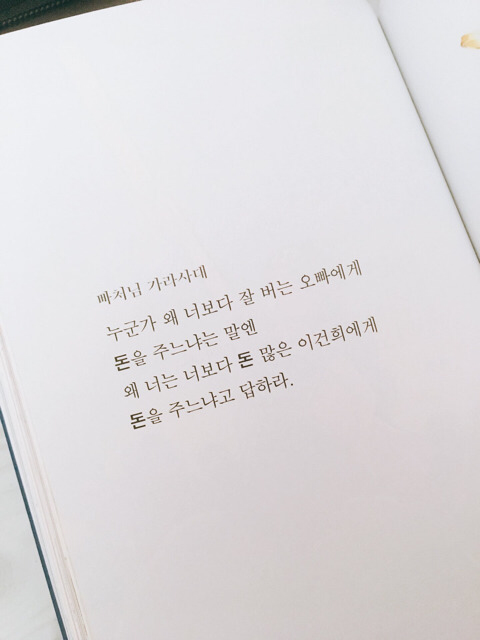 빠처님 가라사대
누군가 왜 너보다 잘 버는 오빠에게
돈을 주느냐는 말엔
왜 너는 너보다 돈 많은 이건희에게
돈을 주느냐고 답하라.